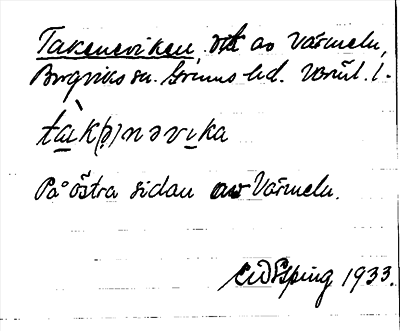 Takeneviken, vik av Värmeln,
Borgviks sn. Grums hd. Värml. l.
tàk(ə)nəvika
På östra sidan av Värmeln.
Esping 1933.